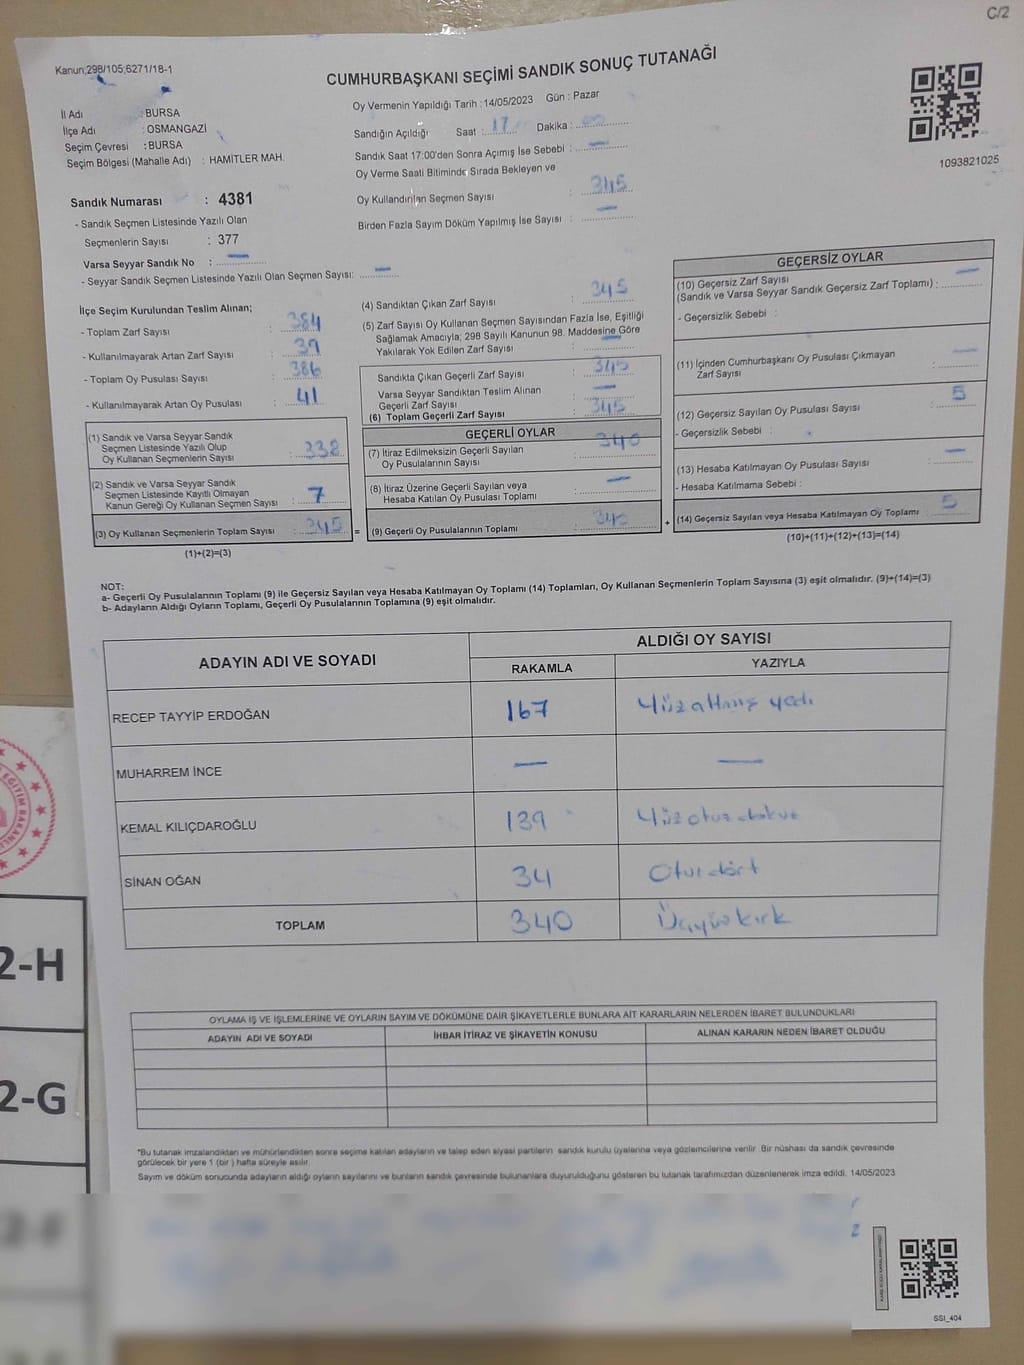 C/2
Kanun;298/105;6271/18-1
CUMHURBAŞKANI SEÇİMİ SANDIK SONUÇ TUTANAĞI
Oy Vermenin Yapıldığı Tarih : 14/05/2023 Gün : Pazar
İl Adı : BURSA
İlçe Adı : OSMANGAZİ
Seçim Çevresi : BURSA
Seçim Bölgesi (Mahalle Adı) : HAMİTLER MAH.
Sandığın Açıldığı Saat : 17 Dakika : 00
Sandık Saat 17:00'den Sonra Açımış İse Sebebi : —
Oy Verme Saati Bitiminde Sırada Bekleyen ve
Oy Kullandırılan Seçmen Sayısı : 345
Birden Fazla Sayım Döküm Yapılmış İse Sayısı : —
1093821025
Sandık Numarası : 4381
- Sandık Seçmen Listesinde Yazılı Olan
Seçmenlerin Sayısı : 377
Varsa Seyyar Sandık No : —
- Seyyar Sandık Seçmen Listesinde Yazılı Olan Seçmen Sayısı: —
İlçe Seçim Kurulundan Teslim Alınan;
- Toplam Zarf Sayısı : 384
- Kullanılmayarak Artan Zarf Sayısı : 39
- Toplam Oy Pusulası Sayısı : 386
- Kullanılmayarak Artan Oy Pusulası : 41
(1) Sandık ve Varsa Seyyar Sandık
Seçmen Listesinde Yazılı Olup
Oy Kullanan Seçmenlerin Sayısı : 338
(2) Sandık ve Varsa Seyyar Sandık
Seçmen Listesinde Kayıtlı Olmayan
Kanun Gereği Oy Kullanan Seçmen Sayısı : 7
(3) Oy Kullanan Seçmenlerin Toplam Sayısı : 345 =
(1)+(2)=(3)
(4) Sandıktan Çıkan Zarf Sayısı : 345
(5) Zarf Sayısı Oy Kullanan Seçmen Sayısından Fazla İse, Eşitliği
Sağlamak Amacıyla; 298 Sayılı Kanunun 98. Maddesine Göre
Yakılarak Yok Edilen Zarf Sayısı : —
Sandıkta Çıkan Geçerli Zarf Sayısı : 345
Varsa Seyyar Sandıktan Teslim Alınan
Geçerli Zarf Sayısı : —
(6) Toplam Geçerli Zarf Sayısı : 345
GEÇERLİ OYLAR
(7) İtiraz Edilmeksizin Geçerli Sayılan
Oy Pusulalarının Sayısı : 340
(8) İtiraz Üzerine Geçerli Sayılan veya
Hesaba Katılan Oy Pusulası Toplamı : —
(9) Geçerli Oy Pusulalarının Toplamı : 340 +
GEÇERSİZ OYLAR
(10) Geçersiz Zarf Sayısı
(Sandık ve Varsa Seyyar Sandık Geçersiz Zarf Toplamı) : —
- Geçersizlik Sebebi :
(11) İçinden Cumhurbaşkanı Oy Pusulası Çıkmayan
Zarf Sayısı : —
(12) Geçersiz Sayılan Oy Pusulası Sayısı : 5
- Geçersizlik Sebebi :
(13) Hesaba Katılmayan Oy Pusulası Sayısı : —
- Hesaba Katılmama Sebebi :
(14) Geçersiz Sayılan veya Hesaba Katılmayan Oy Toplamı : 5
(10)+(11)+(12)+(13)=(14)
NOT:
a- Geçerli Oy Pusulalarının Toplamı (9) ile Geçersiz Sayılan veya Hesaba Katılmayan Oy Toplamı (14) Toplamları, Oy Kullanan Seçmenlerin Toplam Sayısına (3) eşit olmalıdır. (9)+(14)=(3)
b- Adayların Aldığı Oyların Toplamı, Geçerli Oy Pusulalarının Toplamına (9) eşit olmalıdır.
ADAYIN ADI VE SOYADI ALDIĞI OY SAYISI
RAKAMLA YAZIYLA
RECEP TAYYİP ERDOĞAN 167 Yüzaltmış yedi
MUHARREM İNCE — —
KEMAL KILIÇDAROĞLU 139 Yüzotuz dokuz
SİNAN OĞAN 34 Otuzdört
TOPLAM 340 Üçyüzkırk
OYLAMA İŞ VE İŞLEMLERİNE VE OYLARIN SAYIM VE DÖKÜMÜNE DAİR ŞİKAYETLERLE BUNLARA AİT KARARLARIN NELERDEN İBARET BULUNDUKLARI
ADAYIN ADI VE SOYADI İHBAR İTİRAZ VE ŞİKAYETİN KONUSU ALINAN KARARIN NEDEN İBARET OLDUĞU
*Bu tutanak imzalandıktan ve mühürlendikten sonra seçime katılan adayların ve talep eden siyasi partilerin sandık kurulu üyelerine veya gözlemcilerine verilir. Bir nüshası da sandık çevresinde
görülecek bir yere 1 (bir ) hafta süreyle asılır.
Sayım ve döküm sonucunda adayların aldığı oyların sayılarını ve bunların sandık çevresinde bulunanlara duyurulduğunu gösteren bu tutanak tarafımızdan düzenlenerek imza edildi. 14/05/2023
SSI_404
2-H
2-G